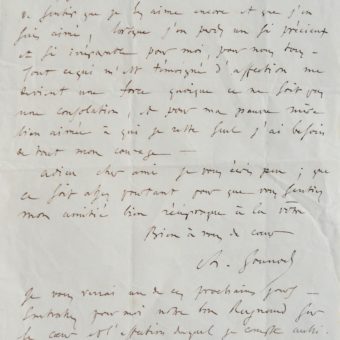 de sentir que je les aime encore et que j'en
suis aimé, lorsque j'en perds un si précieux
et si irréparable pour moi, pour nous tous -
Tout ce qui m'est témoigné d'affection me
devient une force quoique ce ne soit pas
une consolation, et pour ma pauvre mère
bien aimée à qui je reste seul j'ai besoin
de tout mon courage -
adieu cher ami je vous écris peu ; que
ce soit assez pourtant pour que vous sentiez
mon amitié bien réciproque à la vôtre
Bien à vous de coeur
Ch. Gounod
Je vous verrai un de ces prochains jours -
pour moi notre bon Raymond sur
le coeur et l'affection duquel je compte aussi.